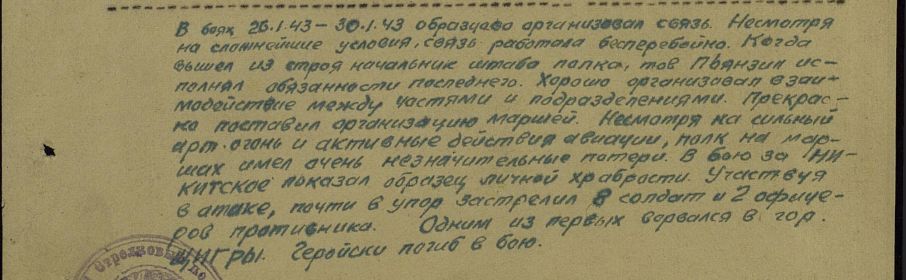 В боях 26.1.43 – 30.1.43 образцово организовал связь. Несмотря
на сложнейшие условия, связь работала бесперебойно. Когда
вышел из строя начальник штаба полка, тов Пьянзин ис-
полнял обязанности последнего. Хорошо организовал взаи-
модействие между частями и подразделениями. Прекрас-
но поставил организацию маршей. Несмотря на сильный
арт. огонь и активные действия авиации, полк на мар-
шах имел очень незначительные потери. В бою за НИ-
КИТСКОЕ показал образец личной храбрости. Участвуя
в атаке, почти в упор застрелил 8 солдат и 2 офице-
ров противника. Одним из первых ворвался в гор.
ЩИГРЫ. Геройски погиб в бою.
Стрелковый